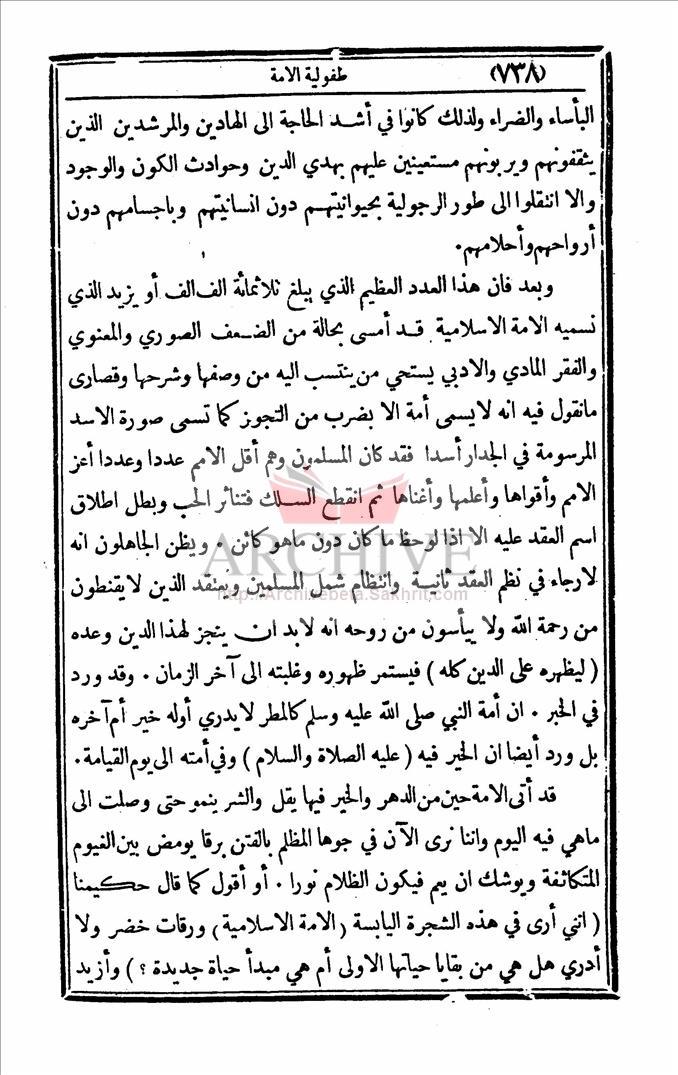 (٧٣٨)
طفولية الامة
البأساء والضراء ولذلك كانوا في أشد الحاجة الى الهادين والمرشدين الذين
يثقفونهم ويربونهم مستعينين عليهم بهدي الدين وحوادث الكون والوجود
والا انتقلوا الى طور الرجولية بحيوانيتهم دون انسانيتهم وباجسامهم دون
أرواحهم وأحلامهم.
وبعد فان هذا العدد العظيم الذي يبلغ ثلاثمائة الف الف أو يزيد الذي
نسميه الامة الاسلامية قد أمسى بحالة من الضعف الصوري والمعنوي
والفقر المادي والادبي يستحي من ينتسب اليه من وصفها وشرحها وقصارى
مانقول فيه انه لايسمى أمة الا بضرب من التجوز كما تسمى صورة الاسد
المرسومة في الجدار أسدا فقد كان المسلمون وهم أقل الامم عددا وعددا أعز
الامم وأقواها وأعلمها وأغناها ثم انقطع السلك فتناثر الحب وبطل اطلاق
اسم العقد عليه الا اذا لوحظ ما كان دون ماهو كائن . ويظن الجاهلون انه
لارجاء في نظم العقد ثانية وانتظام شمل المسلمين ويعتقد الذين لايقنطون
من رحمة الله ولا ييأسون من روحه انه لابد ان ينجز لهذا الدين وعده
( ليظهره على الدين كله ) فيستمر ظهوره وغلبته الى آخر الزمان . وقد ورد
في الخبر . ان أمة النبي صلى الله عليه وسلم كالمطر لايدري أوله خير أم آخره
بل ورد أيضا ان الخير فيه ( عليه الصلاة والسلام ) وفي أمته الى يوم القيامة .
قد أتى الامة حين من الدهر والخير فيها يقل والشر ينمو حتى وصلت الى
ماهي فيه اليوم واننا نرى الآن في جوها المظلم بالفتن برقا يومض بين الغيوم
المتكاثفة ويوشك ان يم فيكون الظلام نورا . أو أقول كما قال حكيمنا
( انني أرى في هذه الشجرة اليابسة (الامة الاسلامية) ورقات خضر ولا
أدري هل هي من بقايا حياتها الاولى أم هي مبدأ حياة جديدة ؟ ) وأزيد
ARCHIVE
http://Archivebeta.Sakhrit.com